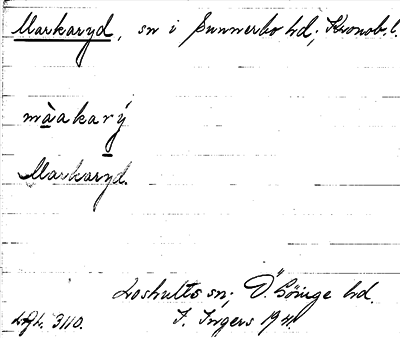 Markaryd, sn i Sunnerbo hd; Kronob. l.
màakarý
Markaryd.
Loshults sn; Ö. Göinge hd.
LAL. 3110. I. Ingers 1941.